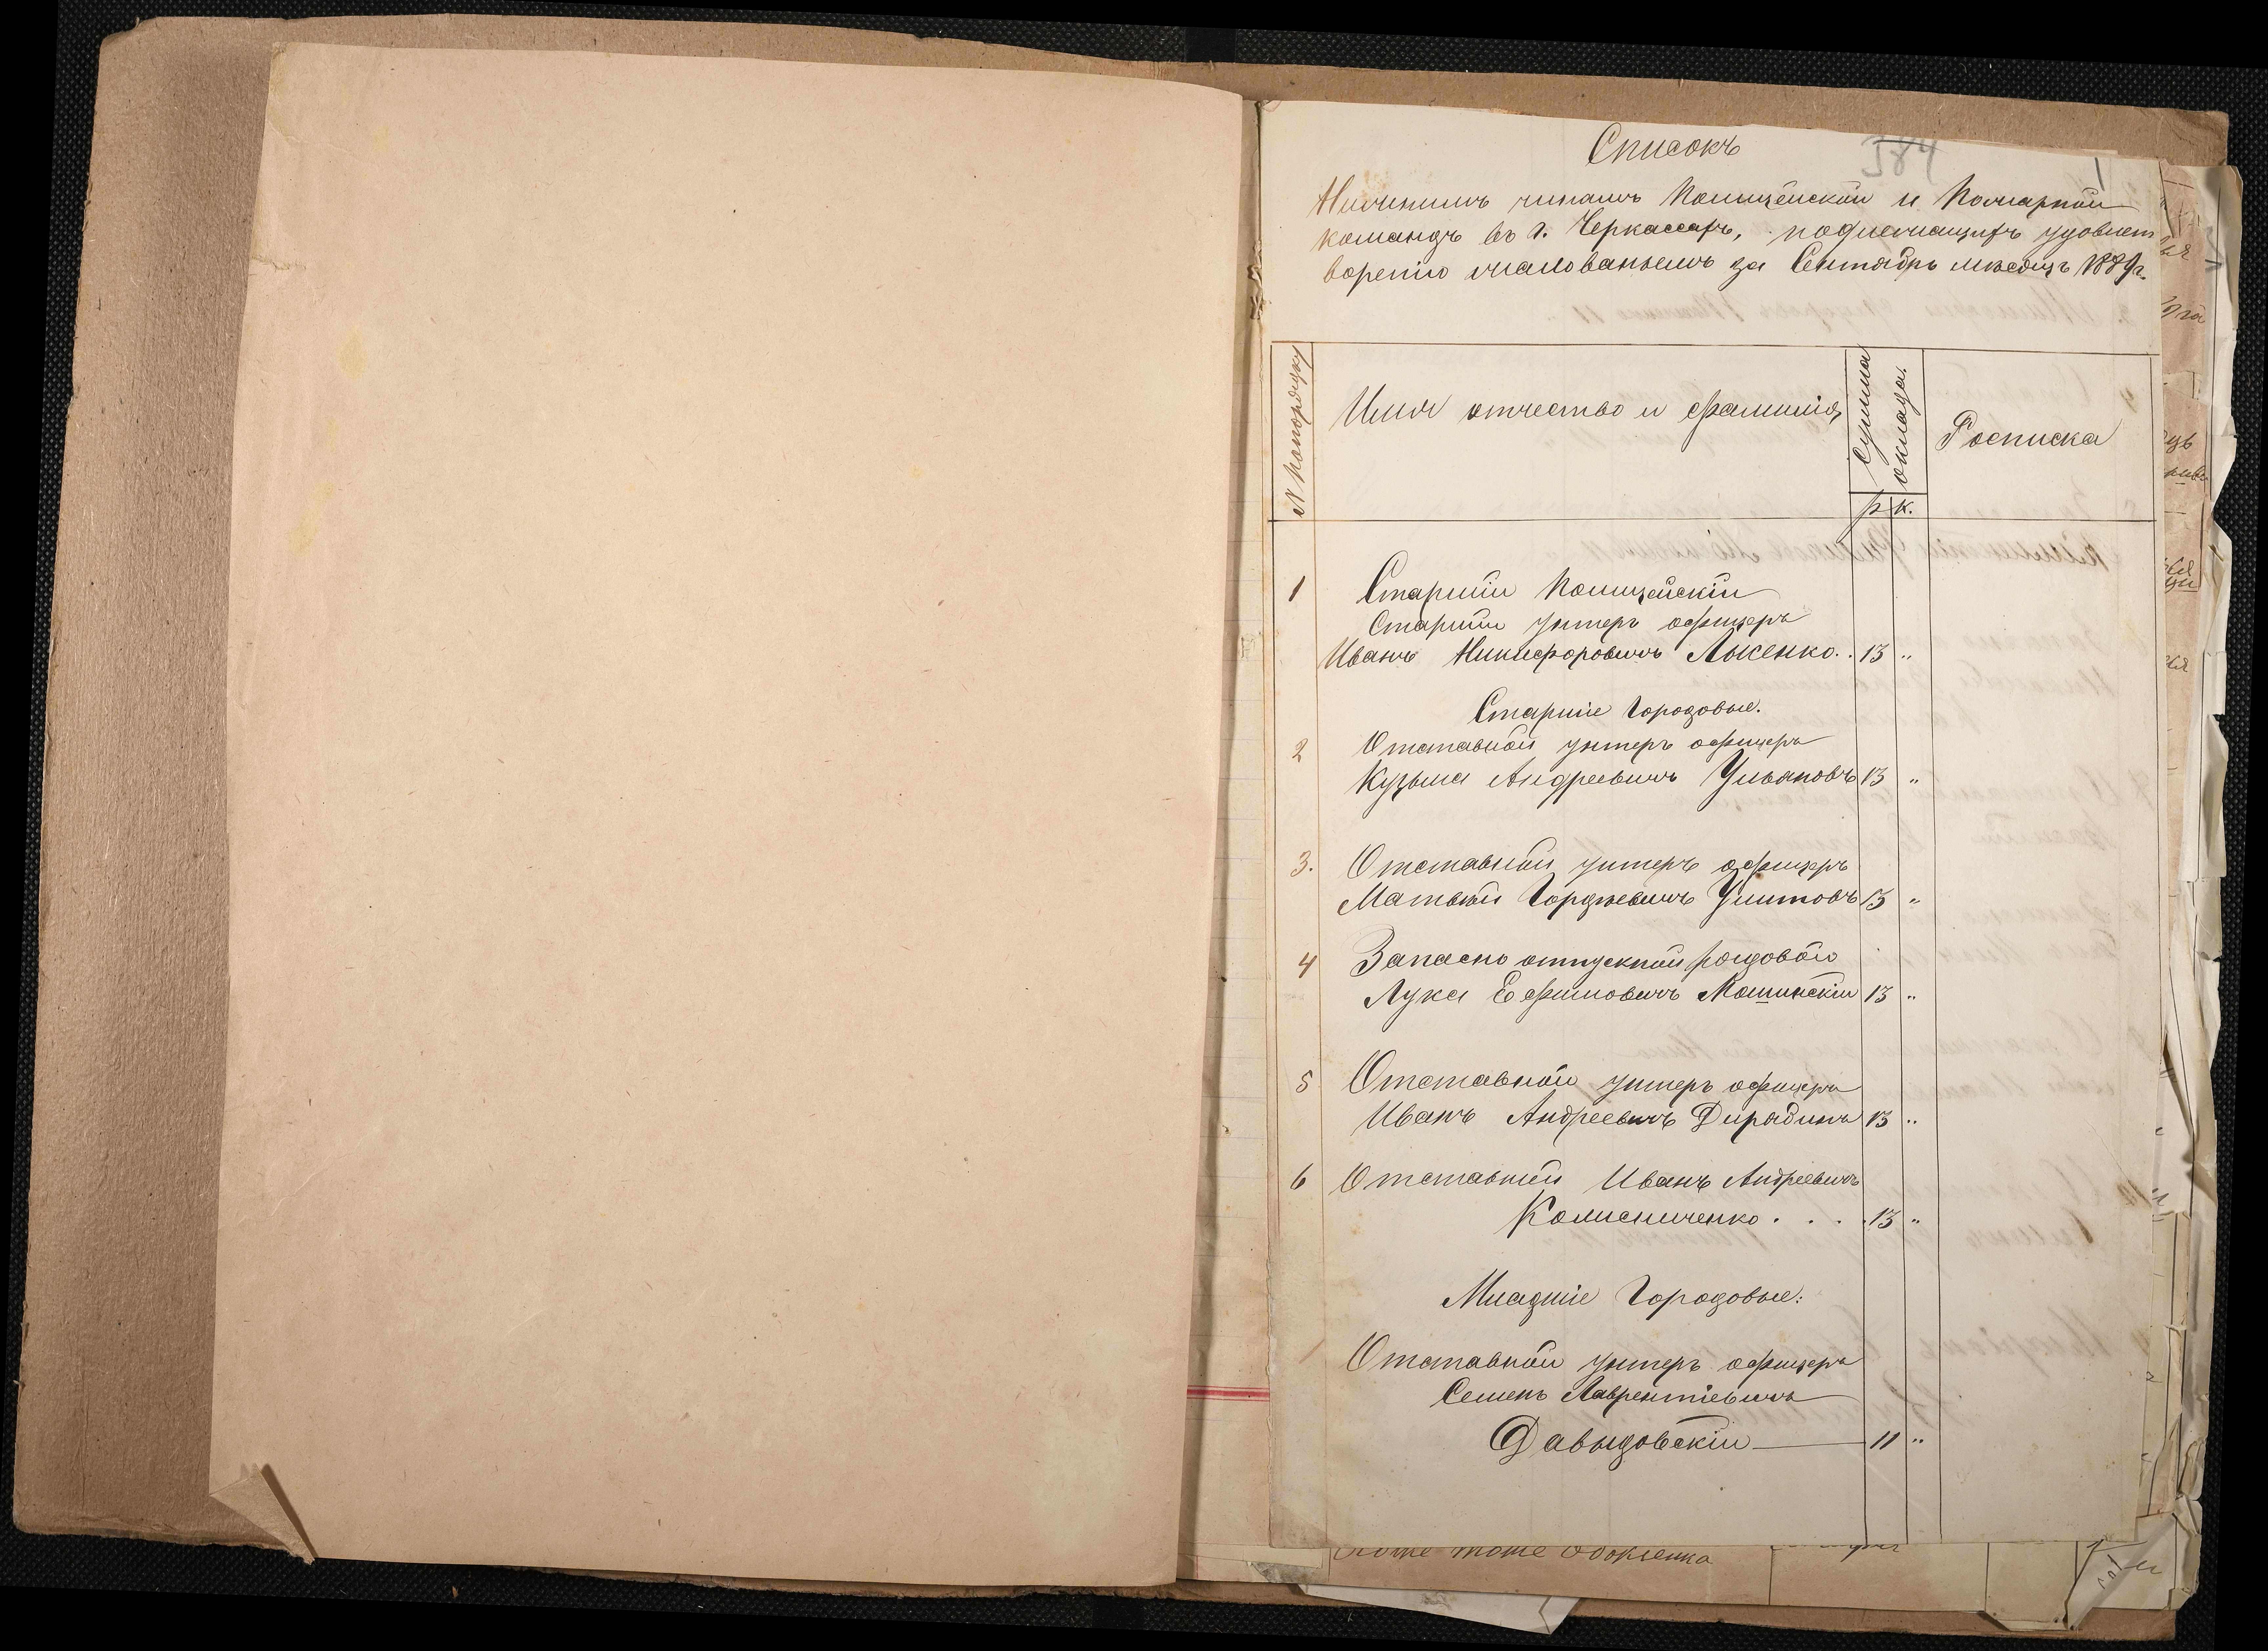 Списокъ
384
1
Нижнимъ чинамъ Полицейской и Пожарной
командъ въ г. Черкассахъ, подлежащихъ удовлет
воренію жалованьемъ за Сентябрь мѣсяцъ 1889г.
№ попорядку
Имя отчество и фамилія
Сумма
оклада.
Росписка
р. к.
1 Старшій Полицейскій
Старшій унтеръ офицеръ
Иванъ Никифоровичъ Лысенко. . 13 „
Старшіе Городовые.
2 Отставной унтеръ офицеръ
Кузьма Андреевичъ Ульяновъ 13 „
3. Отставной унтеръ офицеръ
Матвѣй Гордѣевичъ Улитовъ 13 „
4 Запасно отпускной рядовой
Лука Ефимовичъ Мошинскій 13 „
5 Отставной унтеръ офицеръ
Иванъ Андреевичъ Дирядинъ 13 „
6 Отставной Иванъ Андреевичъ
Колисниченко . . . . 13 „
Младшіе Городовые:
1 Отставной унтеръ офицеръ
Семенъ Лаврентіевичъ
Давыдовскій 11 „
тоже